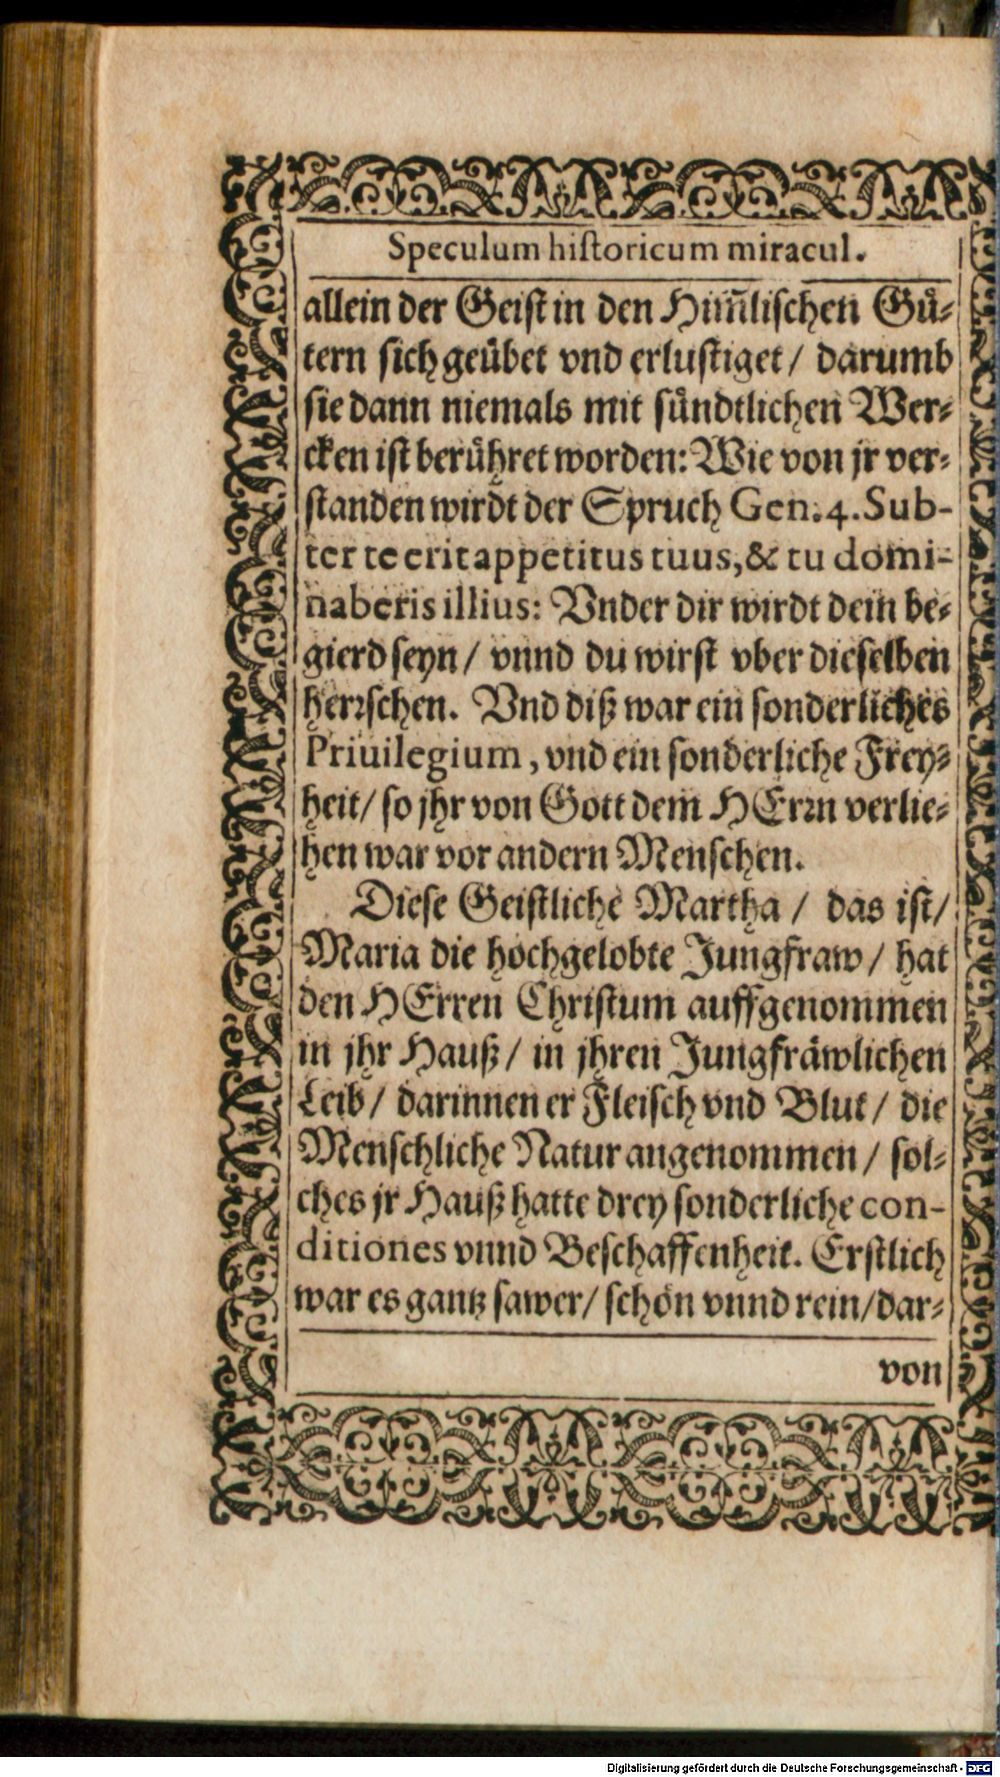 Speculum hiſtoricum miracul.
allein der Geiſt in den Him̃liſchen Guͤ-
tern ſich geuͤbet vnd erluſtiget / darumb
ſie dann niemals mit ſuͤndtlichen Wer-
cken iſt beruͤhret worden: Wie von jr ver-
ſtanden wirdt der Spruch Gen. 4. Sub-
ter te erit appetitus tuus, & tu domi-
naberis illius: Vnder dir wirdt dein be-
gierd ſeyn / vnnd du wirſt vber dieſelben
herꝛſchen. Vnd diß war ein ſonderliches
Priuilegium, vnd ein ſonderliche Frey-
heit / ſo jhr von Gott dem HErꝛn verlie-
hen war vor andern Menſchen.
Dieſe Geiſtliche Martha / das iſt /
Maria die hochgelobte Jungfraw / hat
den HErren Chriſtum auffgenommen
in jhr Hauß / in jhren Jungfraͤwlichen
Leib / darinnen er Fleiſch vnd Blut / die
Menſchliche Natur angenommen / ſol-
ches jr Hauß hatte drey ſonderliche con-
ditiones vnnd Beſchaffenheit. Erſtlich
war es gantz ſawer / ſchoͤn vnnd rein / dar-
von
Digitalisierung gefördert durch die Deutsche Forschungsgemeinschaft - DFG